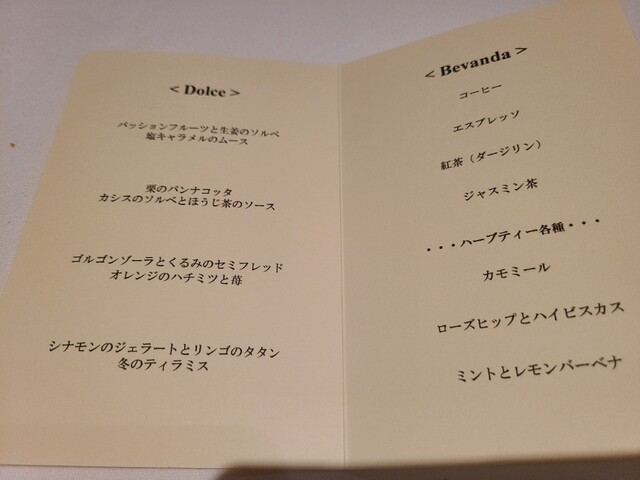 < Dolce >
パッションフルーツと生姜のソルベ
塩キャラメルのムース
栗のパンナコッタ
カシスのソルベとほうじ茶のソース
ゴルゴンゾーラとくるみのセミフレッド
オレンジのハチミツと苺
シナモンのジェラートとリンゴのタタン
冬のティラミス
< Bevanda >
コーヒー
エスプレッソ
紅茶（ダージリン）
ジャスミン茶
・・・ハーブティー各種・・・
カモミール
ローズヒップとハイビスカス
ミントとレモンバーベナ